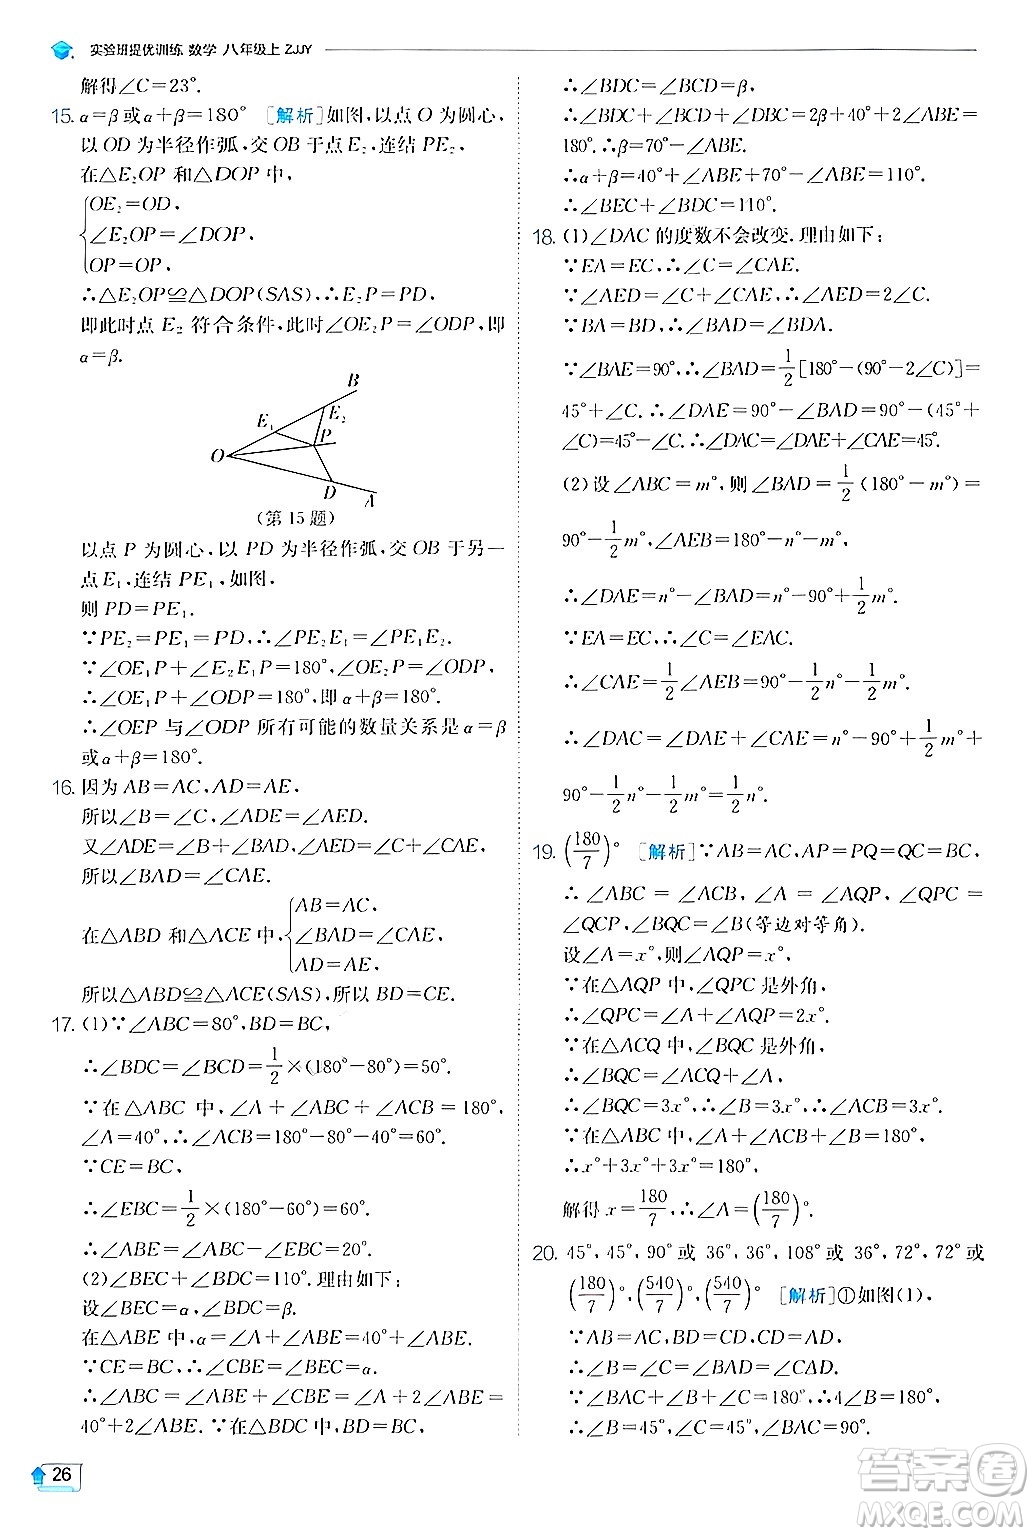 实验班提优训练 数学 八年级上 ZJJY
解得∠C=23°.
15. α=β或α+β=180° [解析]如图,以点 O 为圆心,
以 OD 为半径作弧,交 OB 于点 E₂,连结 PE₂,
在△E₂OP 和△DOP 中,
OE₂=OD,
∠E₂OP=∠DOP,
OP=OP,
∴△E₂OP≌△DOP(SAS),∴E₂P=PD,
即此时点 E₂ 符合条件,此时∠OE₂P=∠ODP,即
α=β.
B
E₁
E₂
P
O
D
A
(第 15 题)
以点 P 为圆心,以 PD 为半径作弧,交 OB 于另一
点 E₁,连结 PE₁,如图,
则 PD=PE₁.
∵PE₂=PE₁=PD,∴∠PE₂E₁=∠PE₁E₂.
∵∠OE₁P+∠E₂E₁P=180°,∠OE₂P=∠ODP,
∴∠OE₁P+∠ODP=180°,即 α+β=180°.
∴∠OEP 与∠ODP 所有可能的数量关系是 α=β
或α+β=180°.
16. 因为 AB=AC,AD=AE,
所以∠B=∠C,∠ADE=∠AED.
又∠ADE=∠B+∠BAD,∠AED=∠C+∠CAE,
所以∠BAD=∠CAE.
在△ABD 和△ACE 中,
AB=AC,
∠BAD=∠CAE,
AD=AE,
所以△ABD≌△ACE(SAS),所以 BD=CE.
17. (1)∵∠ABC=80°,BD=BC,
∴∠BDC=∠BCD=1/2×(180°-80°)=50°.
∵在△ABC 中,∠A+∠ABC+∠ACB=180°,
∠A=40°,∴∠ACB=180°-80°-40°=60°.
∵CE=BC,
∴∠EBC=1/2×(180°-60°)=60°.
∴∠ABE=∠ABC-∠EBC=20°.
(2)∠BEC+∠BDC=110°.理由如下:
设∠BEC=α,∠BDC=β.
在△ABE 中,α=∠A+∠ABE=40°+∠ABE.
∵CE=BC,∴∠CBE=∠BEC=α.
∴∠ABC=∠ABE+∠CBE=∠A+2∠ABE=
40°+2∠ABE.∵在△BDC 中,BD=BC,
∴∠BDC=∠BCD=β.
∴∠BDC+∠BCD+∠DBC=2β+40°+2∠ABE=
180°.∴β=70°-∠ABE.
∴α+β=40°+∠ABE+70°-∠ABE=110°.
∴∠BEC+∠BDC=110°.
18. (1)∠DAC 的度数不会改变.理由如下:
∵EA=EC,∴∠C=∠CAE.
∴∠AED=∠C+∠CAE=2∠C.
∵BA=BD,∴∠BAD=∠BDA.
∵∠BAE=90°,∴∠BAD=1/2[180°-(90°-2∠C)]=
45°+∠C.∴∠DAE=90°-∠BAD=90°-(45°+
∠C)=45°-∠C.∴∠DAC=∠DAE+∠CAE=45°.
(2)设∠ABC=m°,则∠BAD=1/2(180°-m°)=
90°-1/2m°,∠AEB=180°-n°-m°.
∴∠DAE=n°-∠BAD=n°-90°+1/2m°.
∵EA=EC,∴∠C=∠EAC.
∴∠CAE=1/2∠AEB=90°-1/2n°-1/2m°.
∴∠DAC=∠DAE+∠CAE=n°-90°+1/2m°+
90°-1/2n°-1/2m°=1/2n°.
19. (180/7)° [解析]∵AB=AC,AP=PQ=QC=BC,
∴∠ABC=∠ACB,∠A=∠AQP,∠QPC=
∠QCP,∠BQC=∠B(等边对等角).
设∠A=x°,则∠AQP=x°.
∵在△AQP 中,∠QPC 是外角,
∴∠QPC=∠A+∠AQP=2x°.
∵在△ACQ 中,∠BQC 是外角,
∴∠BQC=∠ACQ+∠A.
∴∠BQC=3x°.∴∠B=3x°.∴∠ACB=3x°.
∵在△ABC 中,∠A+∠ACB+∠B=180°,
∴x°+3x°+3x°=180°.
解得 x=180/7.∴∠A=(180/7)°.
20. 45°,45°,90°或 36°,36°,108°或 36°,72°,72°或
(180/7)°,(540/7)°,(540/7)° [解析]①如图(1),
∵AB=AC,BD=AD,CD=AD,
∴∠B=∠C=∠BAD=∠CAD.
∵∠BAC+∠B+∠C=180°,∴4∠B=180°.
∴∠B=45°,∠C=45°,∠BAC=90°.
26
答案圈
MXQE.COM